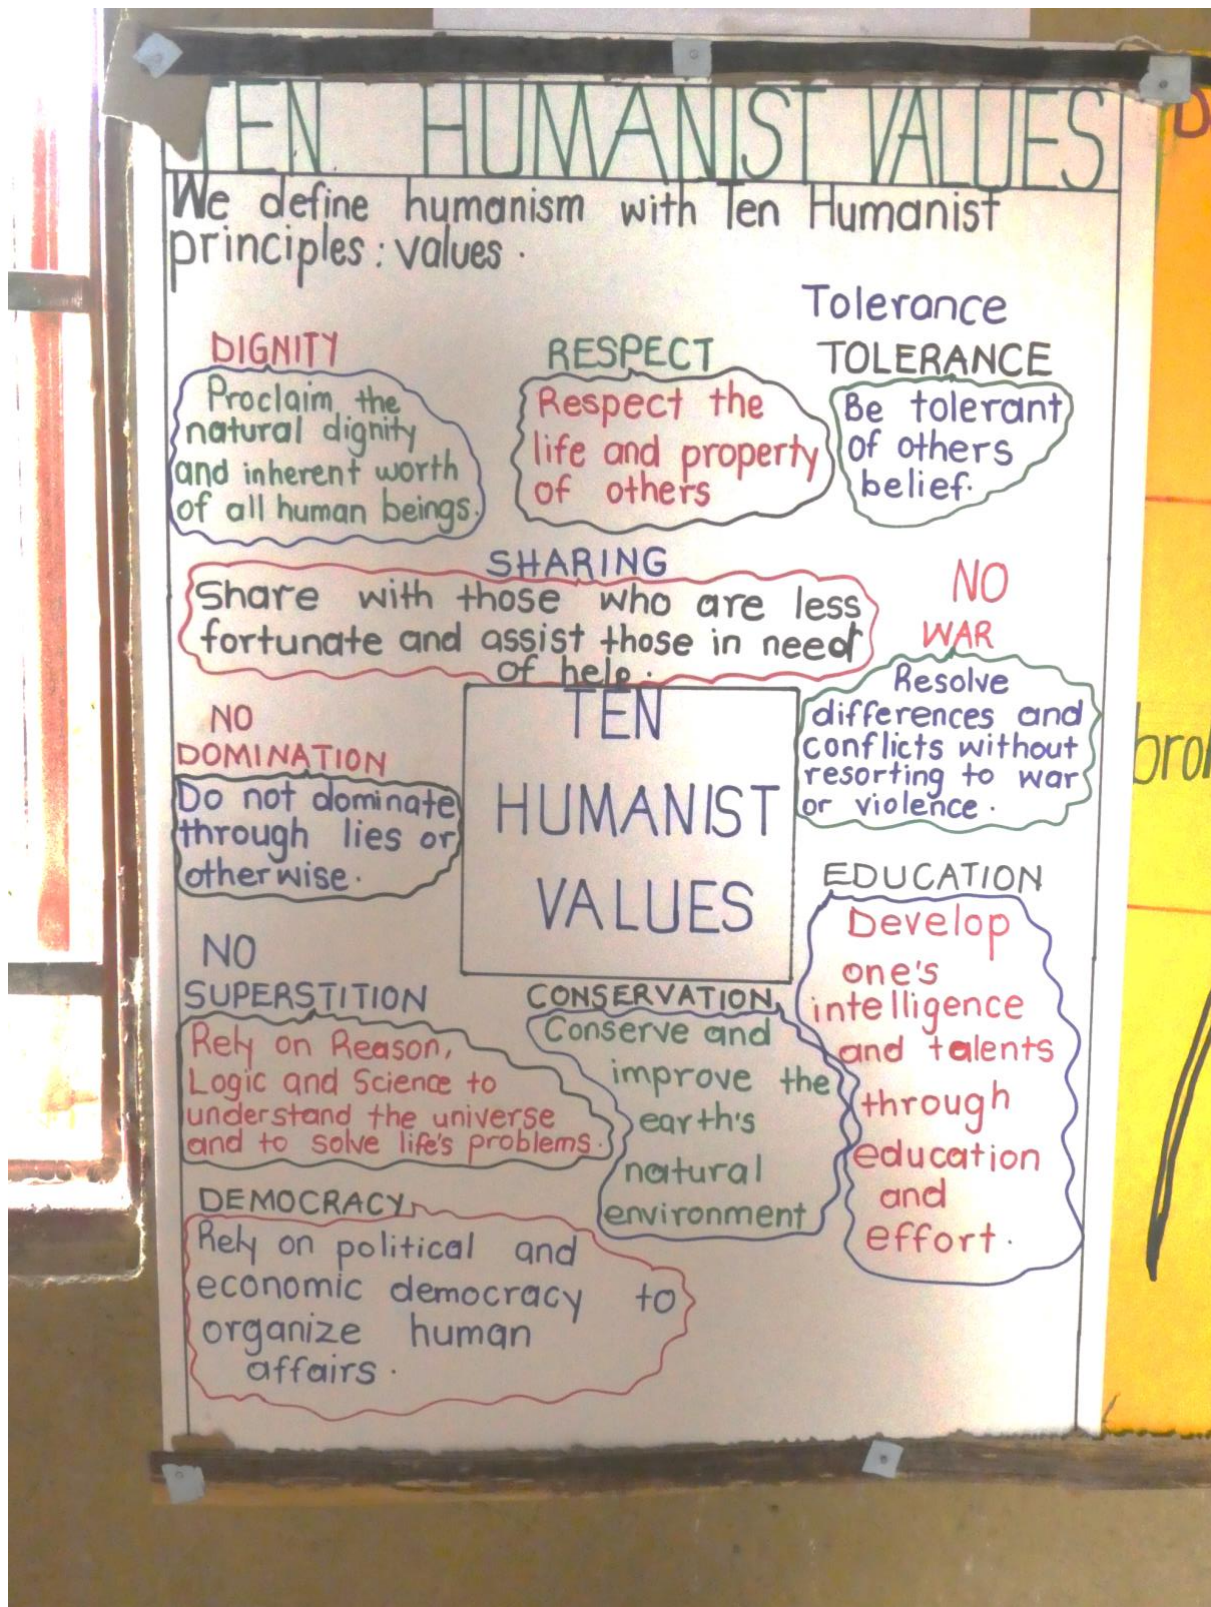 TEN HUMANIST VALUES
We define humanism with Ten Humanist
principles: values.
Tolerance
DIGNITY
Proclaim the
natural dignity
and inherent worth
of all human beings.
RESPECT
Respect the
life and property
of others
TOLERANCE
Be tolerant
of others
belief.
SHARING
Share with those who are less
fortunate and assist those in need
of help.
NO
WAR
Resolve
differences and
conflicts without
resorting to war
or violence.
NO
DOMINATION
Do not dominate
through lies or
otherwise.
TEN
HUMANIST
VALUES
EDUCATION
Develop
one's
intelligence
and talents
through
education
and
effort.
NO
SUPERSTITION
Rely on Reason,
Logic and Science to
understand the universe
and to solve life's problems.
CONSERVATION
Conserve and
improve the
earth's
natural
environment
DEMOCRACY
Rely on political and
economic democracy to
organize human
affairs.